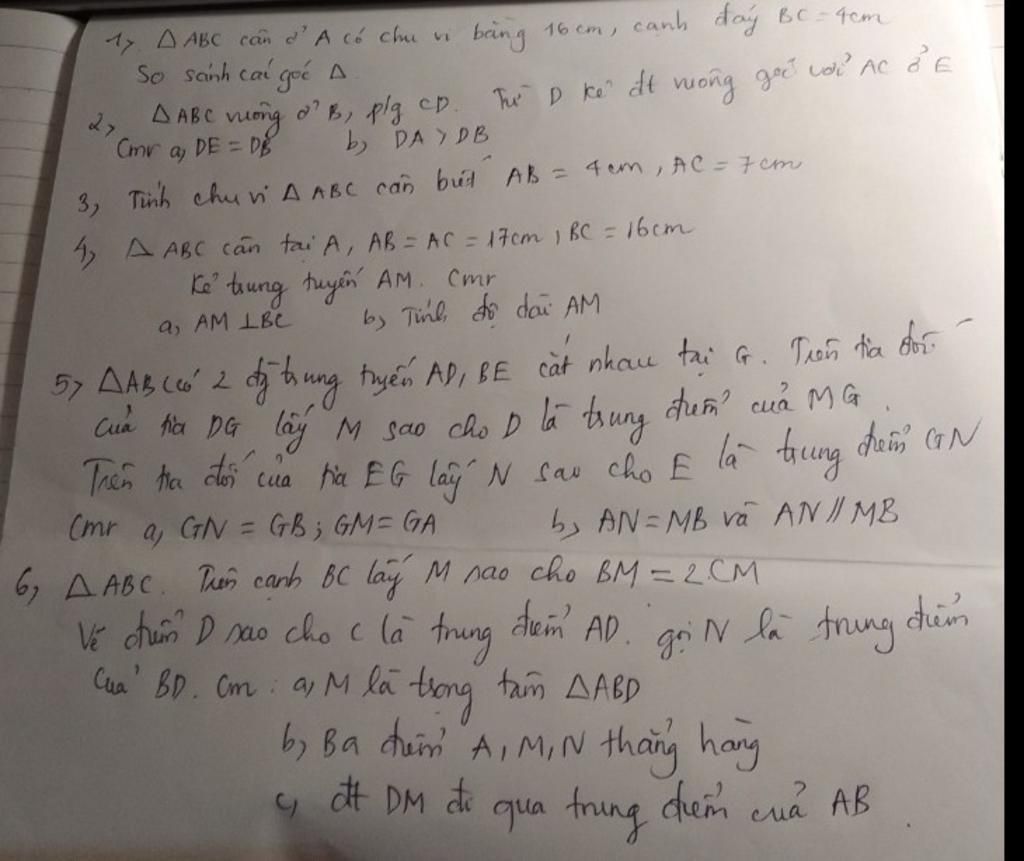 1, △ABC cân ở A có chu vi bằng 16cm, cạnh đáy BC = 4cm
So sánh các góc △
2, △ABC vuông ở B, p/g CD. Từ D kẻ đt vuông góc với AC ở E
Cmr a, DE = DB b, DA > DB
3, Tính chu vi △ABC cân biết AB = 4cm, AC = 7cm
4, △ABC cân tại A, AB = AC = 17cm, BC = 16cm
Kẻ trung tuyến AM. Cmr
a, AM ⊥ BC b, Tính độ dài AM
5, △ABC có 2 đg trung tuyến AD, BE cắt nhau tại G. Trên tia đối
của tia DG lấy M sao cho D là trung điểm của MG.
Trên tia đối của tia EG lấy N sao cho E là trung điểm GN
Cmr a, GN = GB; GM = GA b, AN = MB và AN // MB
6, △ABC. Trên cạnh BC lấy M sao cho BM = 2.CM
Vẽ điểm D sao cho C là trung điểm AD. gọi N là trung điểm
của BD. Cm: a, M là trọng tâm △ABD
b, Ba điểm A, M, N thẳng hàng
c, đt DM đi qua trung điểm của AB.